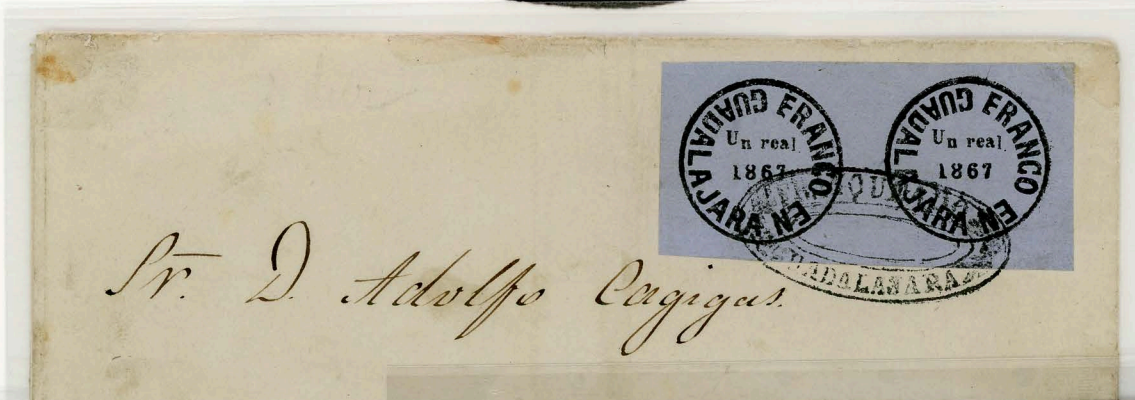 FRANCO EN GUADALAJARA
Un real
1867
FRANCO EN GUADALAJARA
Un real.
1867
GUADALAJARA
Sr. D. Adolfo Cagigas.